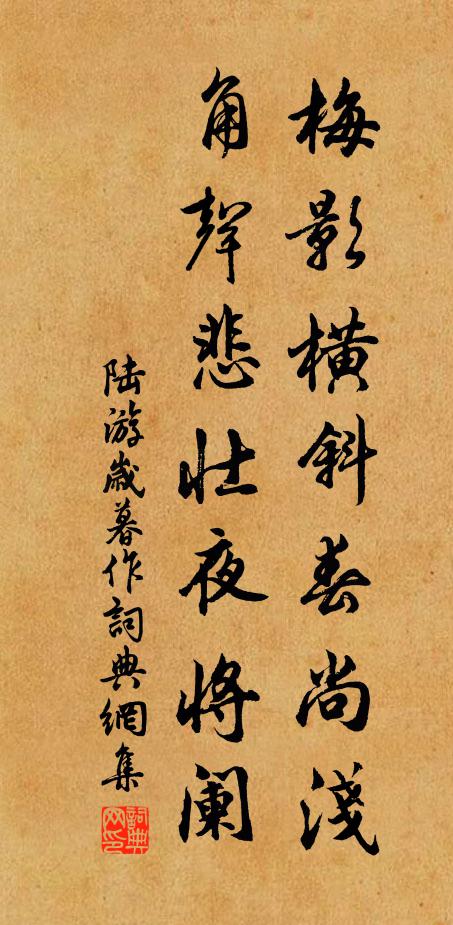 梅影橫斜春尚淺
角聲悲壯夜將闌
陆游歲暮作詞典網集
詞典网印